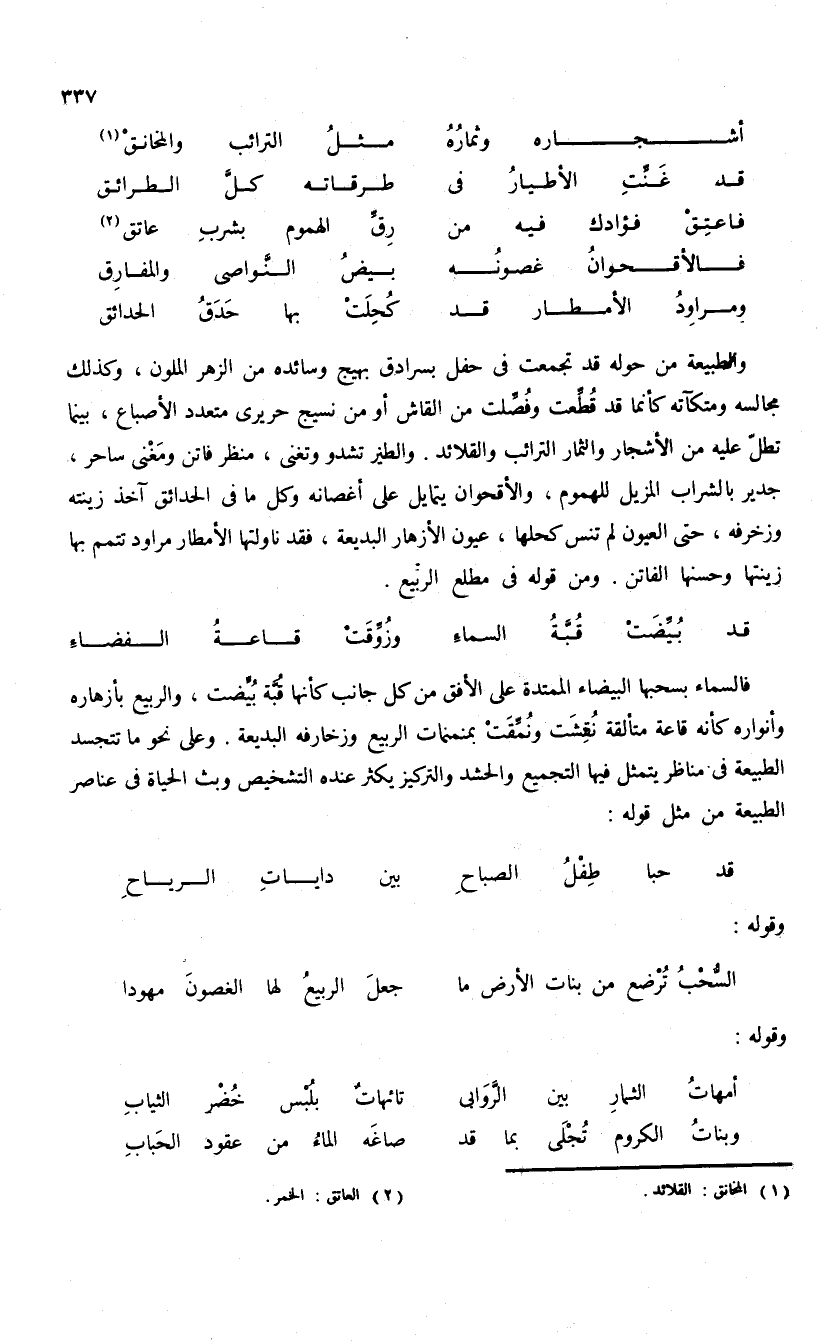 ٣٣٧
أشـجـاره وثمارُهُ مـثـلُ الترائب والمخانقْ(١)
قـد غَـنَّتِ الأطـيـارُ فى طـرقـاتـه كـلَّ الـطـرائق
فـاعـتِـقْ فـؤادك فـيـه من رِقِّ الهموم بشربِ عاتق(٢)
فـالأقـحـوانُ غصونُـه بـيـضُ الـنَّواصى والمفـارِق
ومـراوِدُ الأمـطـار قـد كُحِلَتْ بها حَدَقُ الحدائق
والطبيعة من حوله قد تجمعت فى حفل بسرادق بهيج وسائده من الزهر الملون ، وكذلك
مجالسه ومتكآته كأنما قد قُطِّعت وفُصِّلت من القاش أو من نسيج حريرى متعدد الأصباع ، بينما
تطلّ عليه من الأشجار والثمار الترائب والقلائد . والطير تشدو وتغنى ، منظر فاتن ومَغْنى ساحر ،
جدير بالشراب المزيل للهموم ، والأقحوان يتمايل على أغصانه وكل ما فى الحدائق آخذ زينته
وزخرفه ، حتى العيون لم تنس كحلها ، عيون الأزهار البديعة ، فقد ناولتها الأمطار مراود تتمم بها
زينتها وحسنها الفاتن . ومن قوله فى مطلع الربيع .
قـد بُـيِّضَتْ قُـبَّةُ السماءِ وزُوِّقَتْ قـاعـةُ الـفضـاءِ
فالسماء بسحبها البيضاء الممتدة على الأفق من كل جانب كأنها قُبَّة بُيِّضت ، والربيع بأزهاره
وأنواره كأنه قاعة متألقة نُقِشَت ونُمِّقَتْ بمنمنمات الربيع وزخارفه البديعة . وعلى نحو ما تتجسد
الطبيعة فى مناظر يتمثل فيها التجميع والحشد والتركيز يكثر عنده التشخيص وبث الحياة فى عناصر
الطبيعة من مثل قوله :
قد حبا طِفْلُ الصباحِ بين دايـاتِ الـريـاحِ
وقوله :
السُّحْبُ تُرْضع من بنات الأرض ما جعلَ الربيعُ لها الغصونَ مهودا
وقوله :
أمهاتُ الثمارِ بين الرَّوَابى تائهاتٌ بلُبْس خُضْر الثيابِ
وبناتُ الكروم تُجْلَى بما قد صاغَه الماءُ من عقود الحَبابِ
(١) المخانق : القلائد . (٢) العاتق : الخمر .